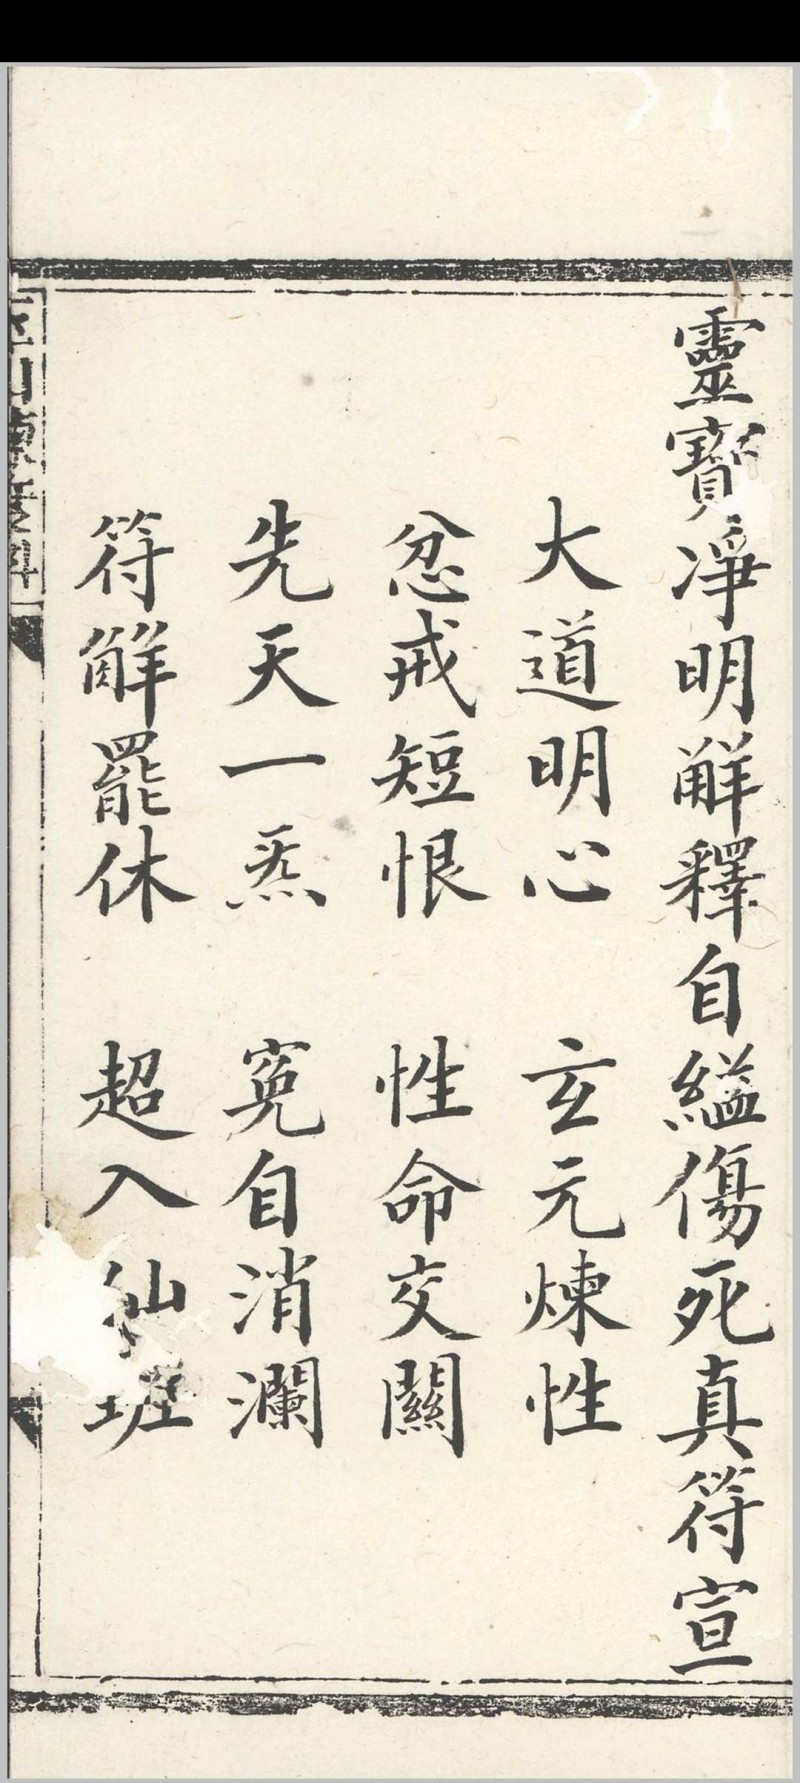 靈寶凈明觧釋自縊傷死真符宣
大道明心　玄元煉性
忿戒短恨　性命交關
先天一炁　寃自消瀾
符觧罷休　超入仙班